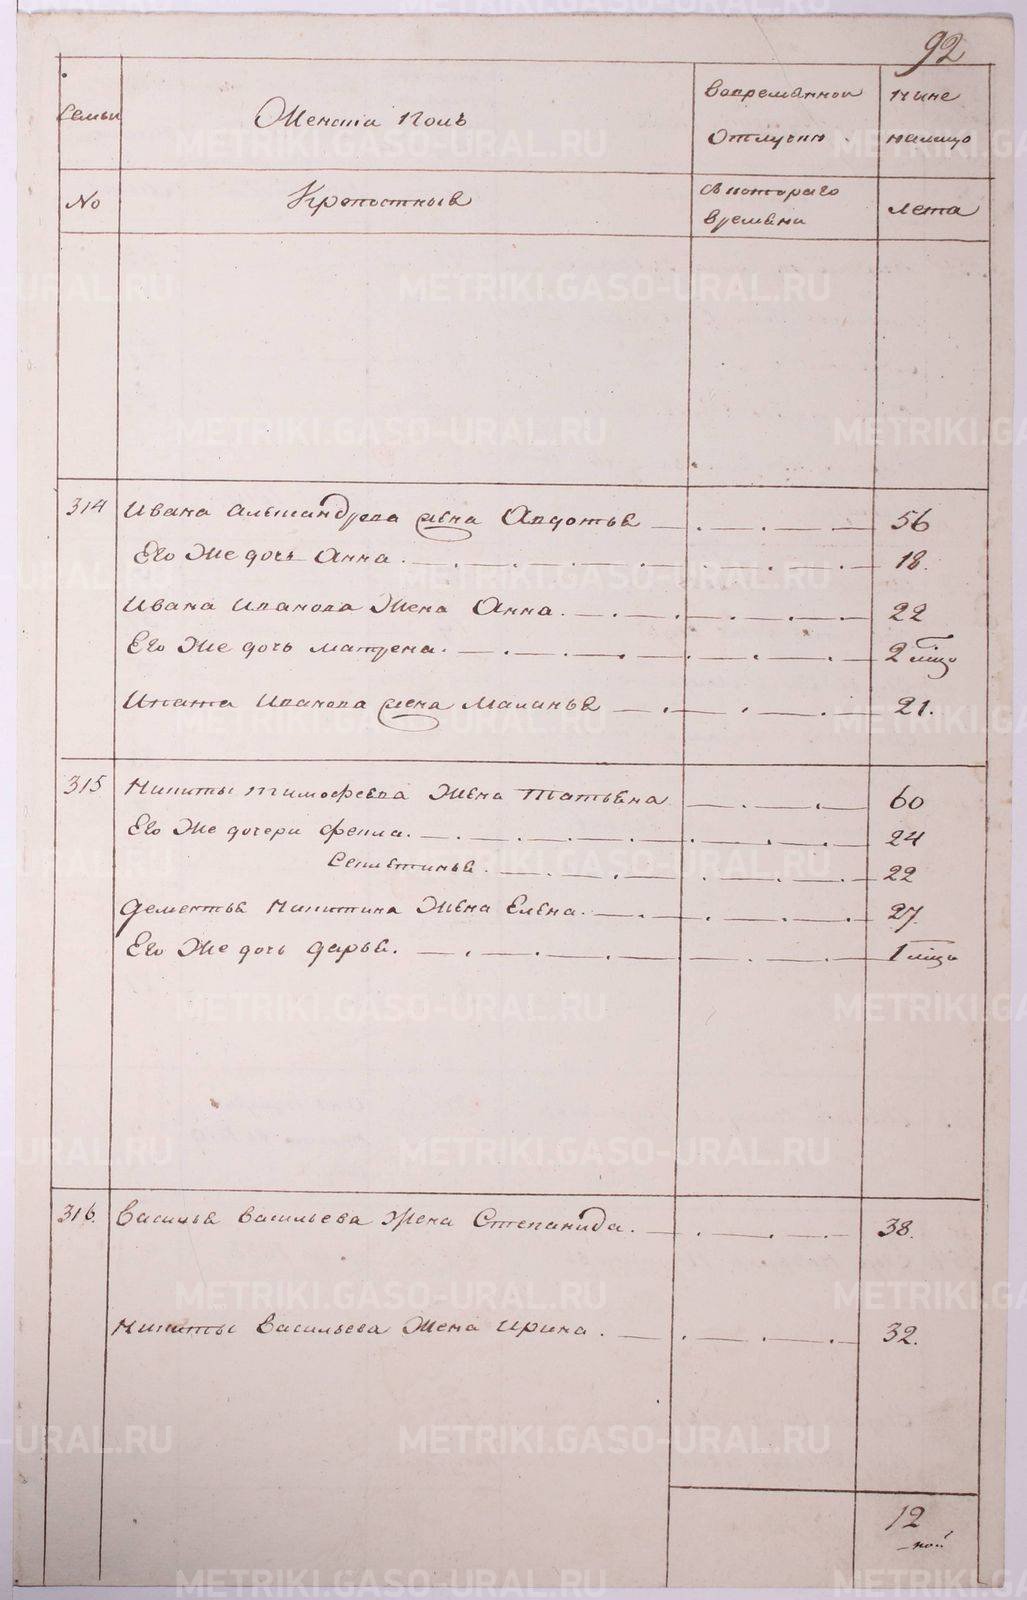 92
Семьи
Женскiй Полъ
Вовременной
Отлучки
Ныне
налицо
No
Крепостные
Скотораго
Времени
Лета
314 Ивана Александрова жена Авдотья 56
Его Же дочь Анна. 18.
Ивана Иванова Жена Анна. 22
Его Же дочь Матрена. 2
Ипата Иванова жена Маланья 21.
315 Никиты Тимофеева Жена Татьяна 60
Его Же дочери Фекла. 24
22
Дементья Никитина Жена Елена. 27.
Его Же дочь Дарья. 1
316. Василья Васильева Жена Степанида. 38.
Никиты Васильева Жена Ирина. 32.
12
METRIKI.GASO-URAL.RU